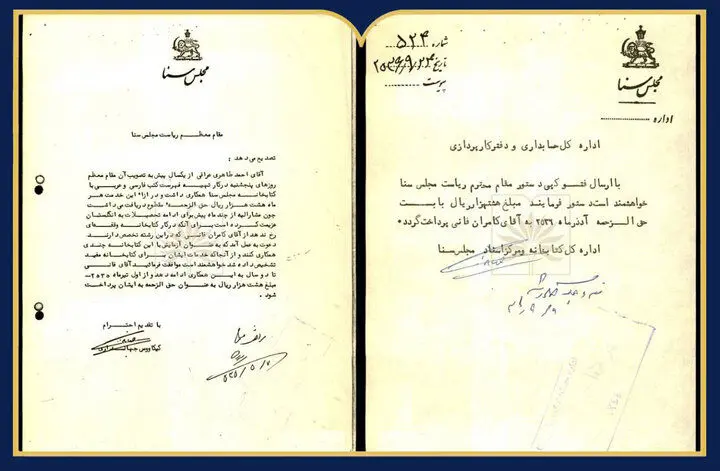 مجلس سنا
مقام معظم ریاست مجلس سنا
تصدیع میدهد:
آقای احمد طاهری عراقی از یکسال پیش به تصویب آن مقام معظم
روزهای پنجشنبه در کار تهیه فهرست کتب فارسی و عربی با
کتابخانه مجلس سنا همکاری داشت و در ازاء این خدمت هر
ماه هشت هزار ریال حق الزحمه مقطوع دریافت میداشت
چون مشارالیه از چند ماه پیش برای ادامه تحصیلات به انگلستان
عزیمت کرده است برای آنکه در کار کتابخانه وقفه‌ای
رخ ندهد از آقای کامران فانی که در این رشته تخصص دارند
دعوت به عمل آمد که به عنوان آزمایش با این کتابخانه چندی
همکاری کنند و از آنجا که خدمات ایشان برای کتابخانه مفید
تشخیص داده شد خواهشمند است موافقت فرمائید آقای فانی
تا دو سال به این همکاری ادامه دهد و از اول تیرماه ۲۵۳۵
مبلغ هشت هزار ریال به عنوان حق الزحمه به ایشان پرداخت
شود.
با تقدیم احترام
کیکاووس جهانداری
مجلس سنا
شماره ۵۲۴
تاریخ ۲۵۳۶/۹/۲۴
پیوست
اداره
اداره کل حسابداری و دفتر کارپردازی
با ارسال فتوکپی دستور مقام محترم ریاست مجلس سنا
خواهشمند است دستور فرمایند مبلغ هشتهزار ریال بابت
حق الزحمه آذرماه ۲۵۳۶ به آقای کامران فانی پرداخت گردد.
اداره کل کتابخانه ومرکز اسناد مجلس سنا